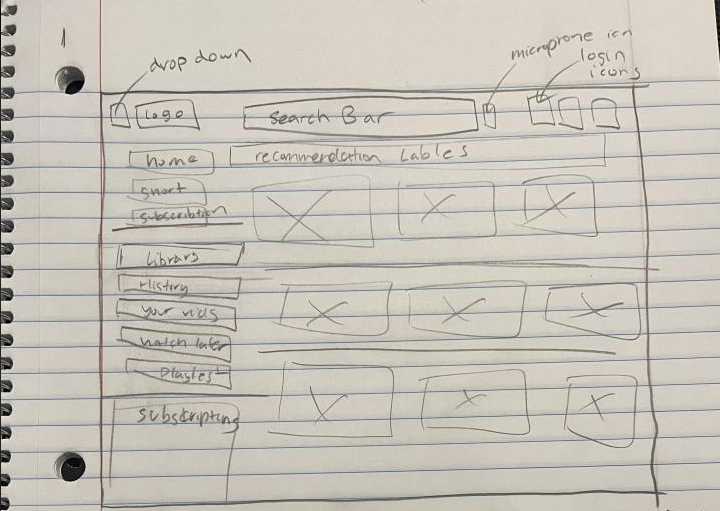 1
drop down
microprone icn
login
icons
Logo
Search Bar
home
recommendation Lables
short
subscribtion
Library
History
your vids
watch later
Playlest
subscripting